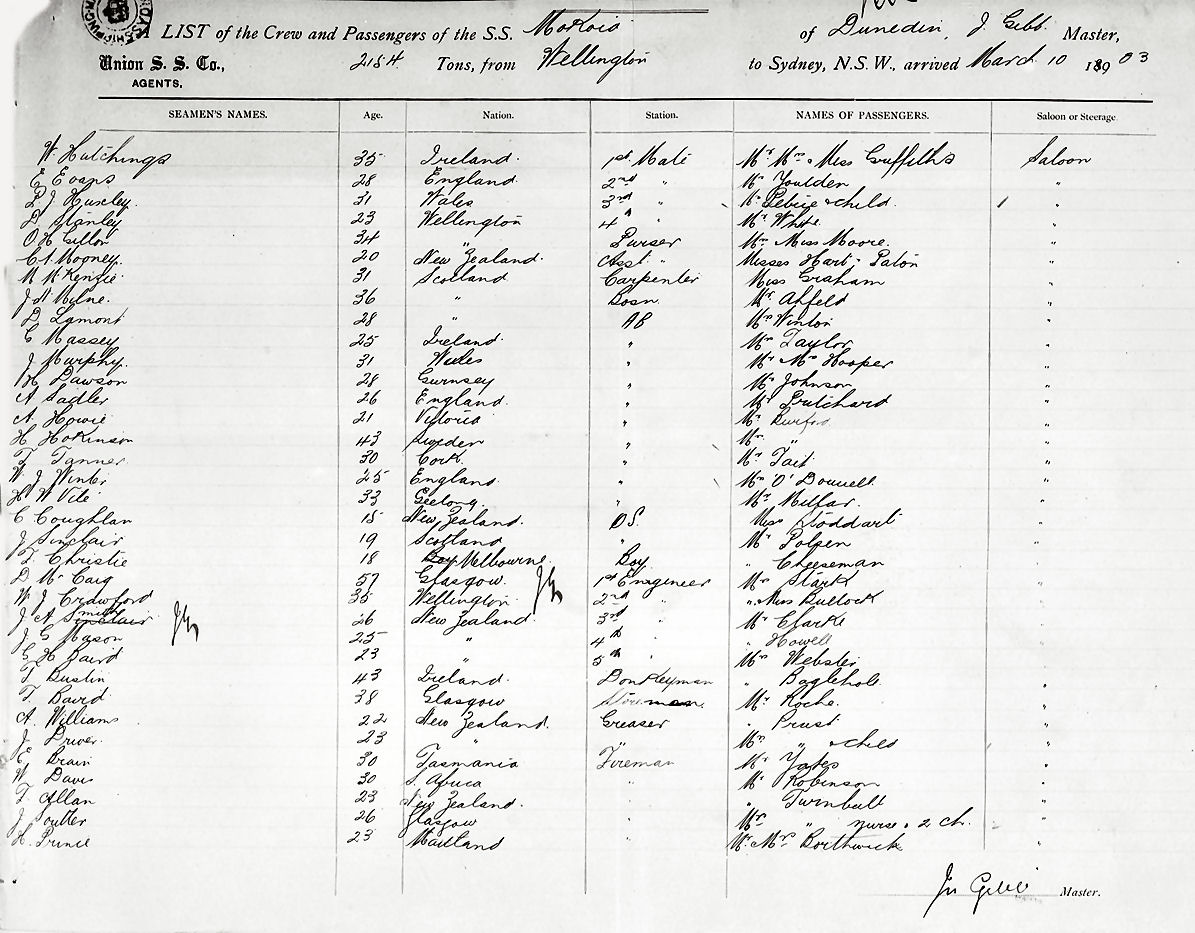 A LIST of the Crew and Passengers of the S.S. Mokoia of Dunedin, J. Gibb. Master,
Union S. S. Co., 2154 Tons, from Wellington to Sydney, N.S.W., arrived March 10 1903
AGENTS.
SEAMEN'S NAMES. Age. Nation. Station. NAMES OF PASSENGERS. Saloon or Steerage
W. Hutchings 35 Ireland. 1st Mate Mr. Mrs. & Miss Griffiths Saloon
E Evans 28 England 2nd " Mr Youlden "
L J Huxley. 31 Wales 3rd " & child. "
D Stanley 23 Wellington 4th " Mr. White "
O H Gillon 34 " Purser Mrs. Miss Moore. "
C. A. Mooney. 20 New Zealand. Asst. " Misses Hart & Paton "
M McKenzie 31 Scotland Carpenter Miss Graham "
J H Milne. 36 " Bosn. Mr. Ahfeld "
D Lamont 28 " AB Mrs Winton "
C Massey 25 Ireland. " Mrs Taylor "
J Murphy. 31 Wales " Mr Mrs Hooper "
H Dawson 28 Gurnsey " Mr Johnson "
A Sadler 26 England. " Mr Pritchard "
A. Howie 21 Victoria " Mr "
H Hokinson 43 Sweden " Mrs " "
T Tanner. 30 Cork. " Mr Tait "
W. J Winter 25 England " Mrs O'Donnell "
H W Vile 33 Geelong. " Mr. Milfar. "
C Coughlan 15 New Zealand. O.S. Miss Stoddart "
J Sinclair 19 Scotland " Mr Polsen "
T Christie 18 Boy Melbourne. Boy " Cheeseman "
D McCaig 57 Glasgow. JG 1st Enngineer Mr Stark "
W J Crawford 35 Wellington 2nd " " Miss Bullock "
J A Sinclair Smith JG 26 New Zealand. 3rd " Mr Clarke "
J G Mason 25 " 4th " " Howell "
G H Baird 23 " 5th " Mr Webster "
T Dustin 43 Ireland. Donkeyman " Baglehole. "
T. Baird 38 Glasgow Mr. Roche. "
A. Williams 22 New Zealand. Greaser " Prust "
J. Driver. 23 " " Mrs " & child "
E. Brain 30 Tasmania Fireman Mr Yates "
W Davis 30 S. Africa " Mr Robinson "
T. Allan 23 New Zealand. " " Turnbull "
J. 26 Glasgow " Mrs " nurse & 2 ch. "
H. Prince 23 Maitland " Mr. Mrs Borthwick "
Jn Gibb Master.